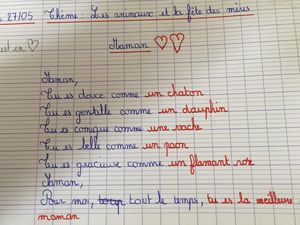 27/05 Thème : Les animaux et la fête des mères
est en ♡
Maman ♡♡
Maman,
Tu es douce comme un chaton
Tu es gentille comme un dauphin
Tu es comique comme une vache
Tu es belle comme un paon
Tu es gracieuse comme un flamant rose
Maman,
Pour moi, tout le temps, tu es la meilleure
maman